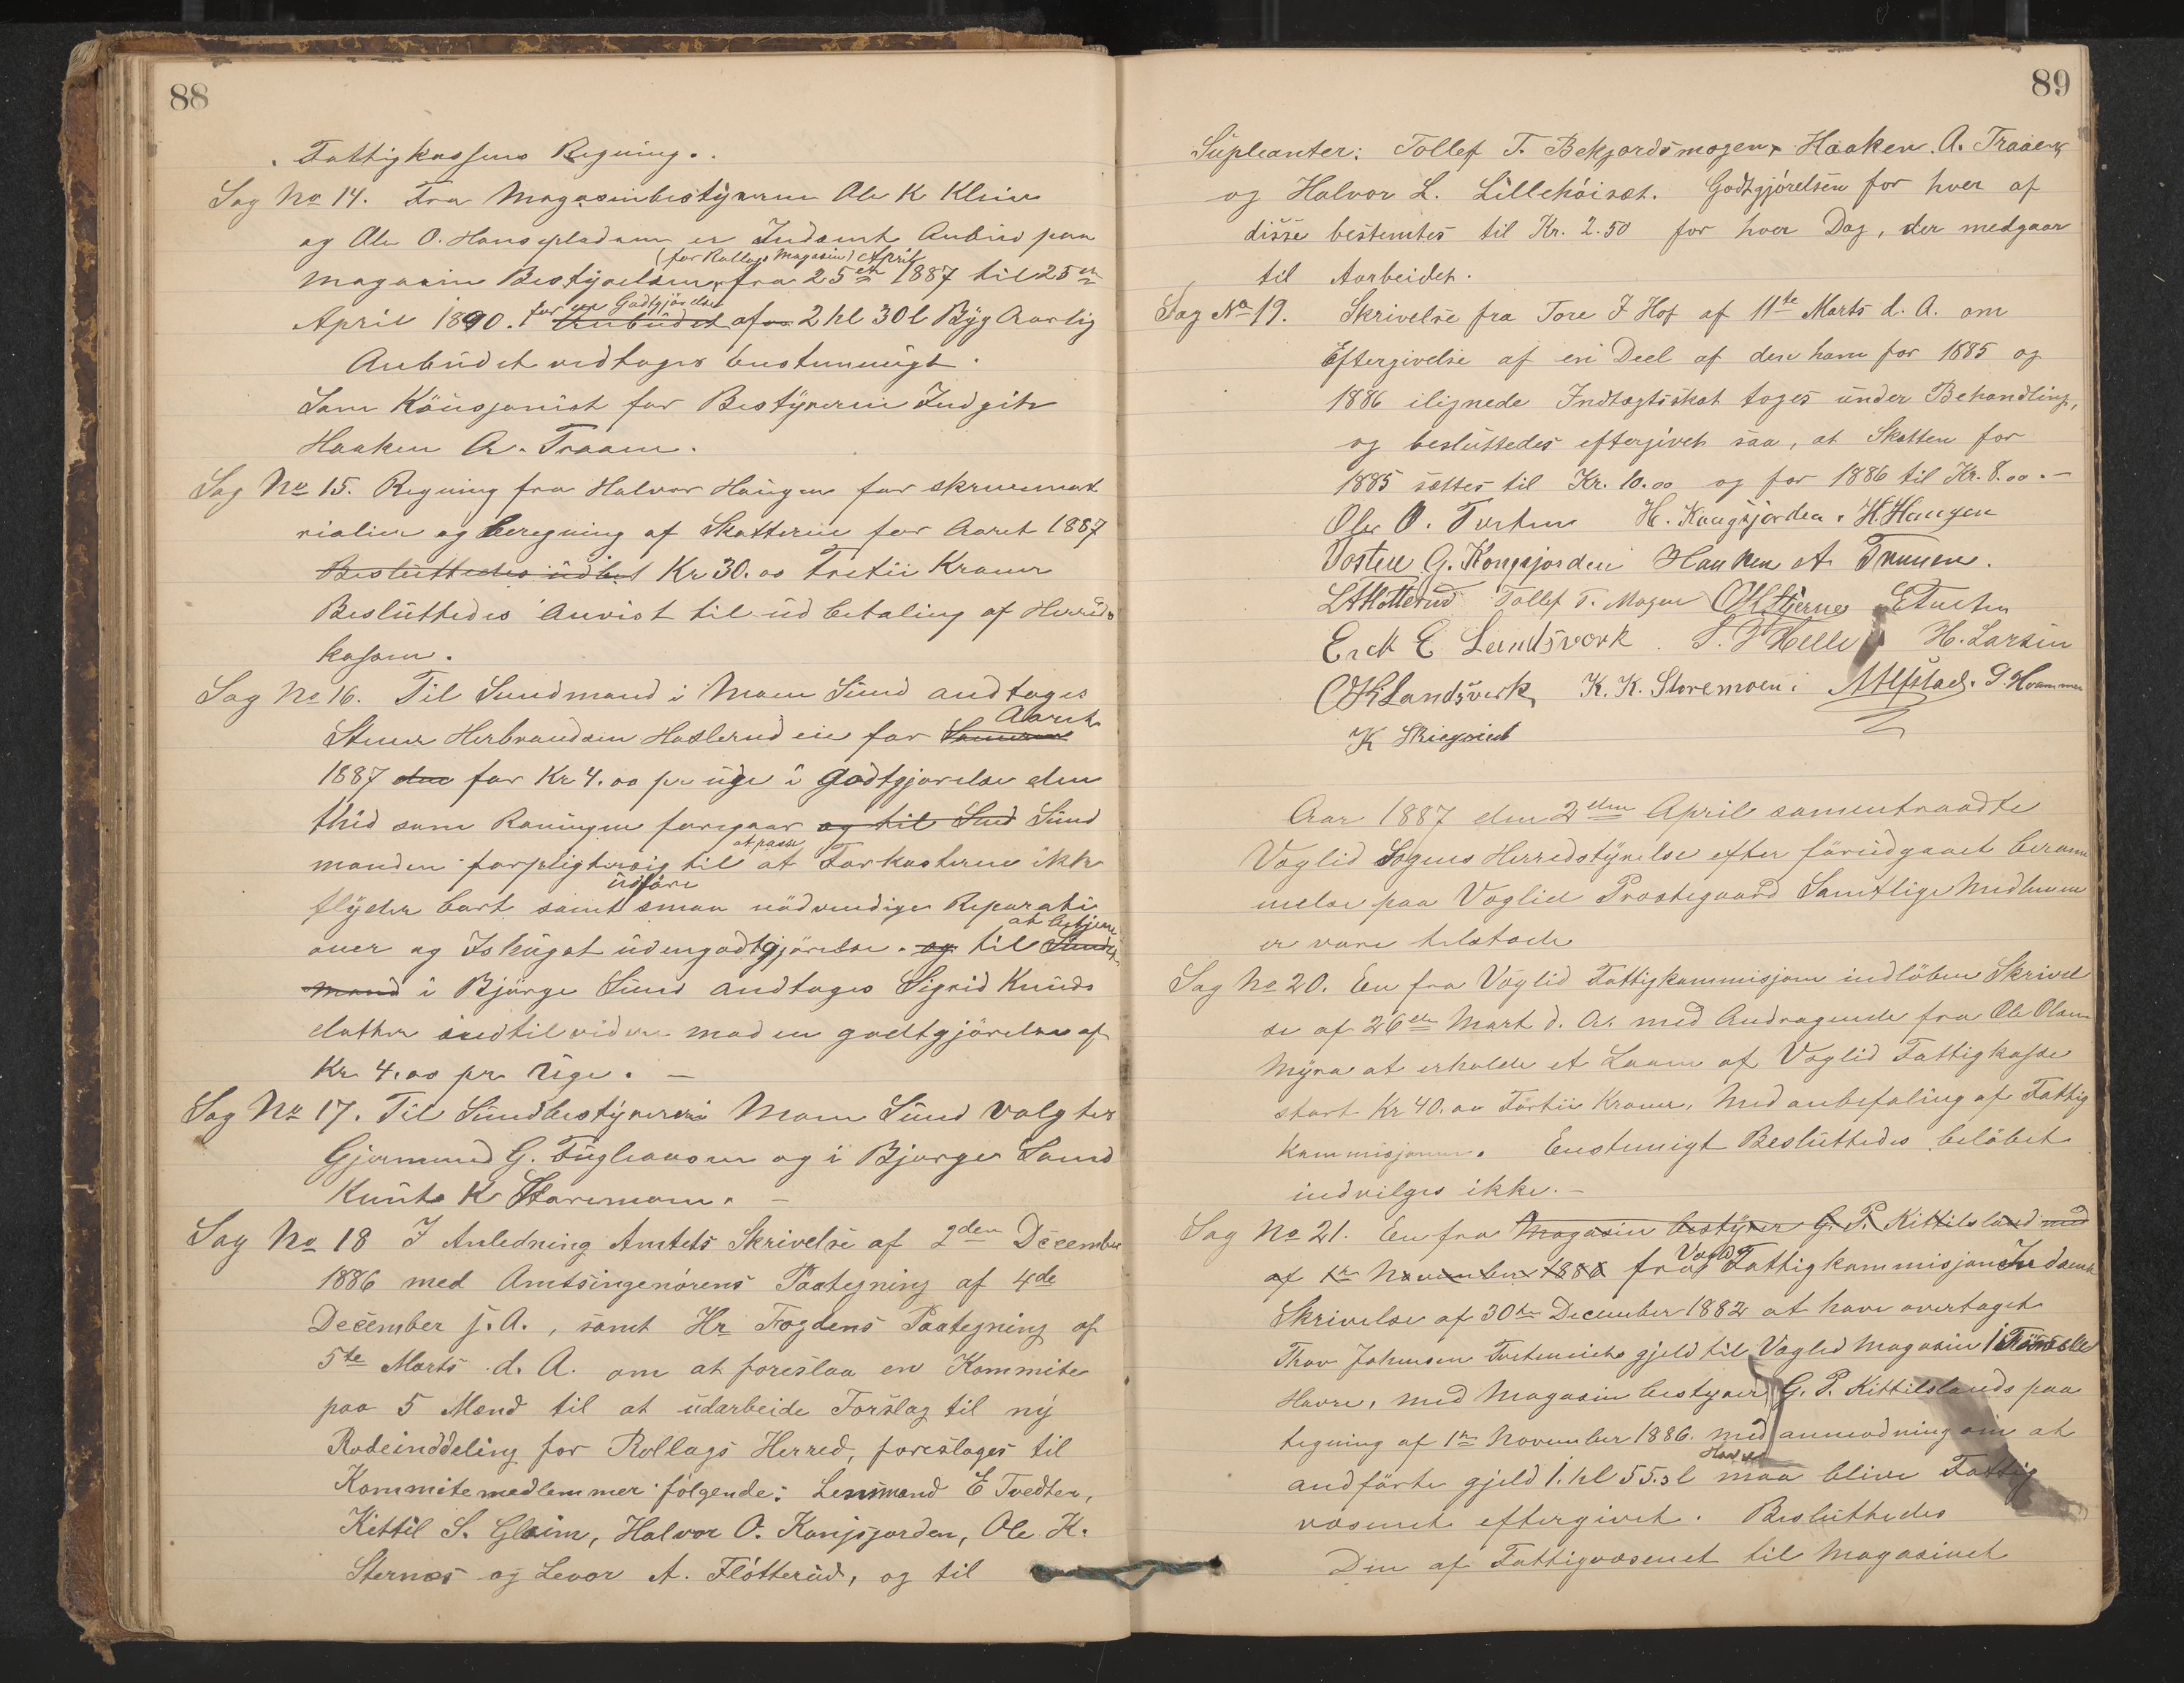 88
Fattigkassens Regning.
Sag No 14. Fra Magasinbestyreren Ole K Kleiv
og Ole O. Hansepladsen er Indsendt Anbud paa
(for Rollags Magasin) April
Magasin Bestyrelsen fra 25de 1887 til 25de
for en Godtgjörelse
April 1890. Anbudet af 2 hl 30 l Byg Aarlig
Anbudet vedtages Enstemmigt.
Som Kausjonist for Bestyreren Indgik
Haaken A. Traaen.
Sag No 15. Regning fra Halvor Haugen for skrivemat
rialier og beregning af Skatterne for Aaret 1887
Besluttedes udbet Kr 30.00 Tretii Kroner
Besluttedes Anvist til udbetaling af Herreds
kassen.
Sag No 16. Til Sundmand i Moen Sund andtages
Aaret
Stener Herbrandsen Haslerudeie for Sommeren
1887 den for Kr 4.00 pr uge i Godtgjorelse den
thid som Roningen foregaar og til Sund Sund
at passe
manden forpligter sig til at Farkosterne ikke
udföre
flyder bort samt smaa nödvendige Reparati
at betjene
oner og Ishugst uden godtgjörelse. og til Sund
mand i Bjørge Sund andtages Sigrid Knuds
datter indtil videre mod en godtgjörelse af
Kr 4.00 pr Uge. —
Sag No 17. Til Sundbestyrer i Moen Sund valgtes
Gjermund G. Fugleaasen og i Bjørge Sund
Knut K Storemoen. —
Sag No 18 I Anledning Amtets Skrivelse af 2den December
1886 med Amtsingenörens Paategning af 4de
December f. A., samt Hr Fogdens Paategning af
5te Marts d. A. om at foreslaa en Kommite
paa 5 Mænd til at udarbeide Forslag til ny
Rodeinddeling for Rollags Herred, foreslages til
Kommitemedlemmer følgende: Lensmand E Tvedten,
Kittil S. Glaim, Halvor O. Konjsjorden, Ole K.
Sternæs og Levor A. Flötterud, og til
89
Supleanter: Tollef T. Bekjordsmogen, Haaken A. Traaen
og Halvor L. Lillehöiset. Godtgjörelsen for hver af
disse bestemtes til Kr. 2.50 for hver Dag, der medgaar
til Aarbeidet.
Sag No 19. Skrivelse fra Tore I Hof af 11te Marts d. A. om
Eftergivelse af en Deel af den ham for 1885 og
1886 ilignede Indtægtsskat toges under Behandling,
og besluttedes eftergivet saa, at Skatten for
1885 sættes til Kr. 10.00 og for 1886 til Kr. 8.00. —
Ole O. Tveten H. Kongsjorden. H. Haugen
Tosten G. Kongsjorden Haaken A Traaen.
L A Flotterud Tollef T. Mogen O K Stjernes E Tveten
Erek E Landsverk. S. P Helle H. Larsen
O H Landsverk K. K. Storemoen. A Alfstad. P. Hvammen
K Skiegsrud
Aar 1887 den 2den April samentraadte
Væglid Sogens Herredstyrelse efter forudgaaet beram
melse paa Væglid Prestegaard Samtlige Medlemmer
er vare tilstæde
Sag No 20. En fra Væglid Fattigkommisjon indlöben Skrivel
se af 26de Mart d. A. med Andragende fra Ole Olsen
Myra at erholde et Laan af Væglid Fattigkasse
stort Kr 40.00 Förtii Kroner, Med anbefaling af Fattig
Kommisjonen. Enstemigt Besluttedes belöbet
indvilges ikke. —
Sag No 21. En fra Magasin bestyrer G. P. Kittilsland med
Væglid
af 1te November 1886 fra Fattigkommisjon Indsendt
Skrivelse af 30te December 1882 at have overtaget
Thov Johnsen Tveteneiets gjeld til Væglid Magasin i
Havre, med Magasin bestyrer G. P. Kittilslands paa
tegning af 1te November 1886. med anmodning om at
Havre
andförte gjeld 1. hl 55.3 l maa blive Fattig
væsenet eftergivet. Besluttedes
Den af Fattigvæsenet til Magasinet